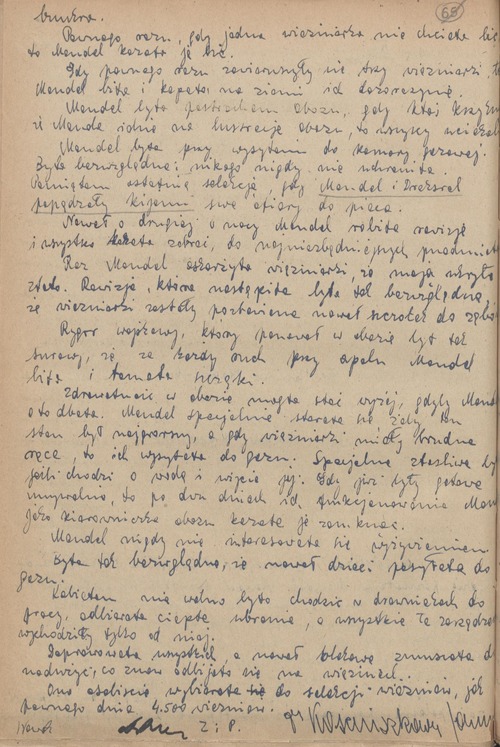 bunkra.
68
Pewnego razu, gdy jedna więźniarka nie chciała bić
to Mandel kazała ją bić.
Gdy pewnego razu zawieruszyły się trzy więźniarki, to
Mandel biła i kopała na ziemi id dozorczynię.
Mandel była postrachem obozu, gdy ktoś krzyknął
iż Mandel idzie na lustrację obozu, to wszyscy uciekali
Mandel była przy wysyłaniu do komory gazowej.
Była bezwzględna i nikogo nigdy nie uchroniła.
Pamiętam ostatnią selekcję, gdy Mandel i Drexel
popędzały kijami swe ofiary do pieca.
Nawet o drugiej w nocy Mandel robiła rewizję
i wszystko kazała zabrać, do najniezbędniejszych przedmiotów
Raz Mandel oskarżyła więźniarki, że mają ukryte
złoto. Rewizja, która nastąpiła była tak bezwzględna,
że więźniarki zostały pozbawione nawet szczotek do zębów
Rygor wojskowy, który panował w obozie był tak
surowy, że za każdy ruch przy apelu Mandel
biła i łamała szczęki.
Zdrowotność w obozie mogła stać wyżej, gdyby Mandel
o to dbała. Mandel specjalnie starała się żeby ten
stan był najgorszy, a gdy więźniarki miały brudne
ręce, to ich wysyłała do gazu. Specjalnie złośliwa była
jeśli chodzi o wodę i użycie jej. Gdy już były gotowe
umywalnie, to po dwu dniach id. funkcjonowania Mandel
jako kierowniczka obozu kazała je zamknąć.
Mandel nigdy nie interesowała się wyżywieniem
Była tak bezwzględna, że nawet dzieci posyłała do
gazu.
Kobietom nie wolno było chodzić w drewniakach do
pracy, odbierała ciepłe ubrania, a wszystkie te zarządzenia
wychodziły tylko od niej.
Deprawowała wszystkich a nawet blokowe zmuszała do
nadużyć, co znów odbijało się na więźniach.
Ona osobiście wybierała do selekcji więźniów, jak
pewnego dnia 4.500 więźniów.
Z. i P.
dr Kościuszkowa